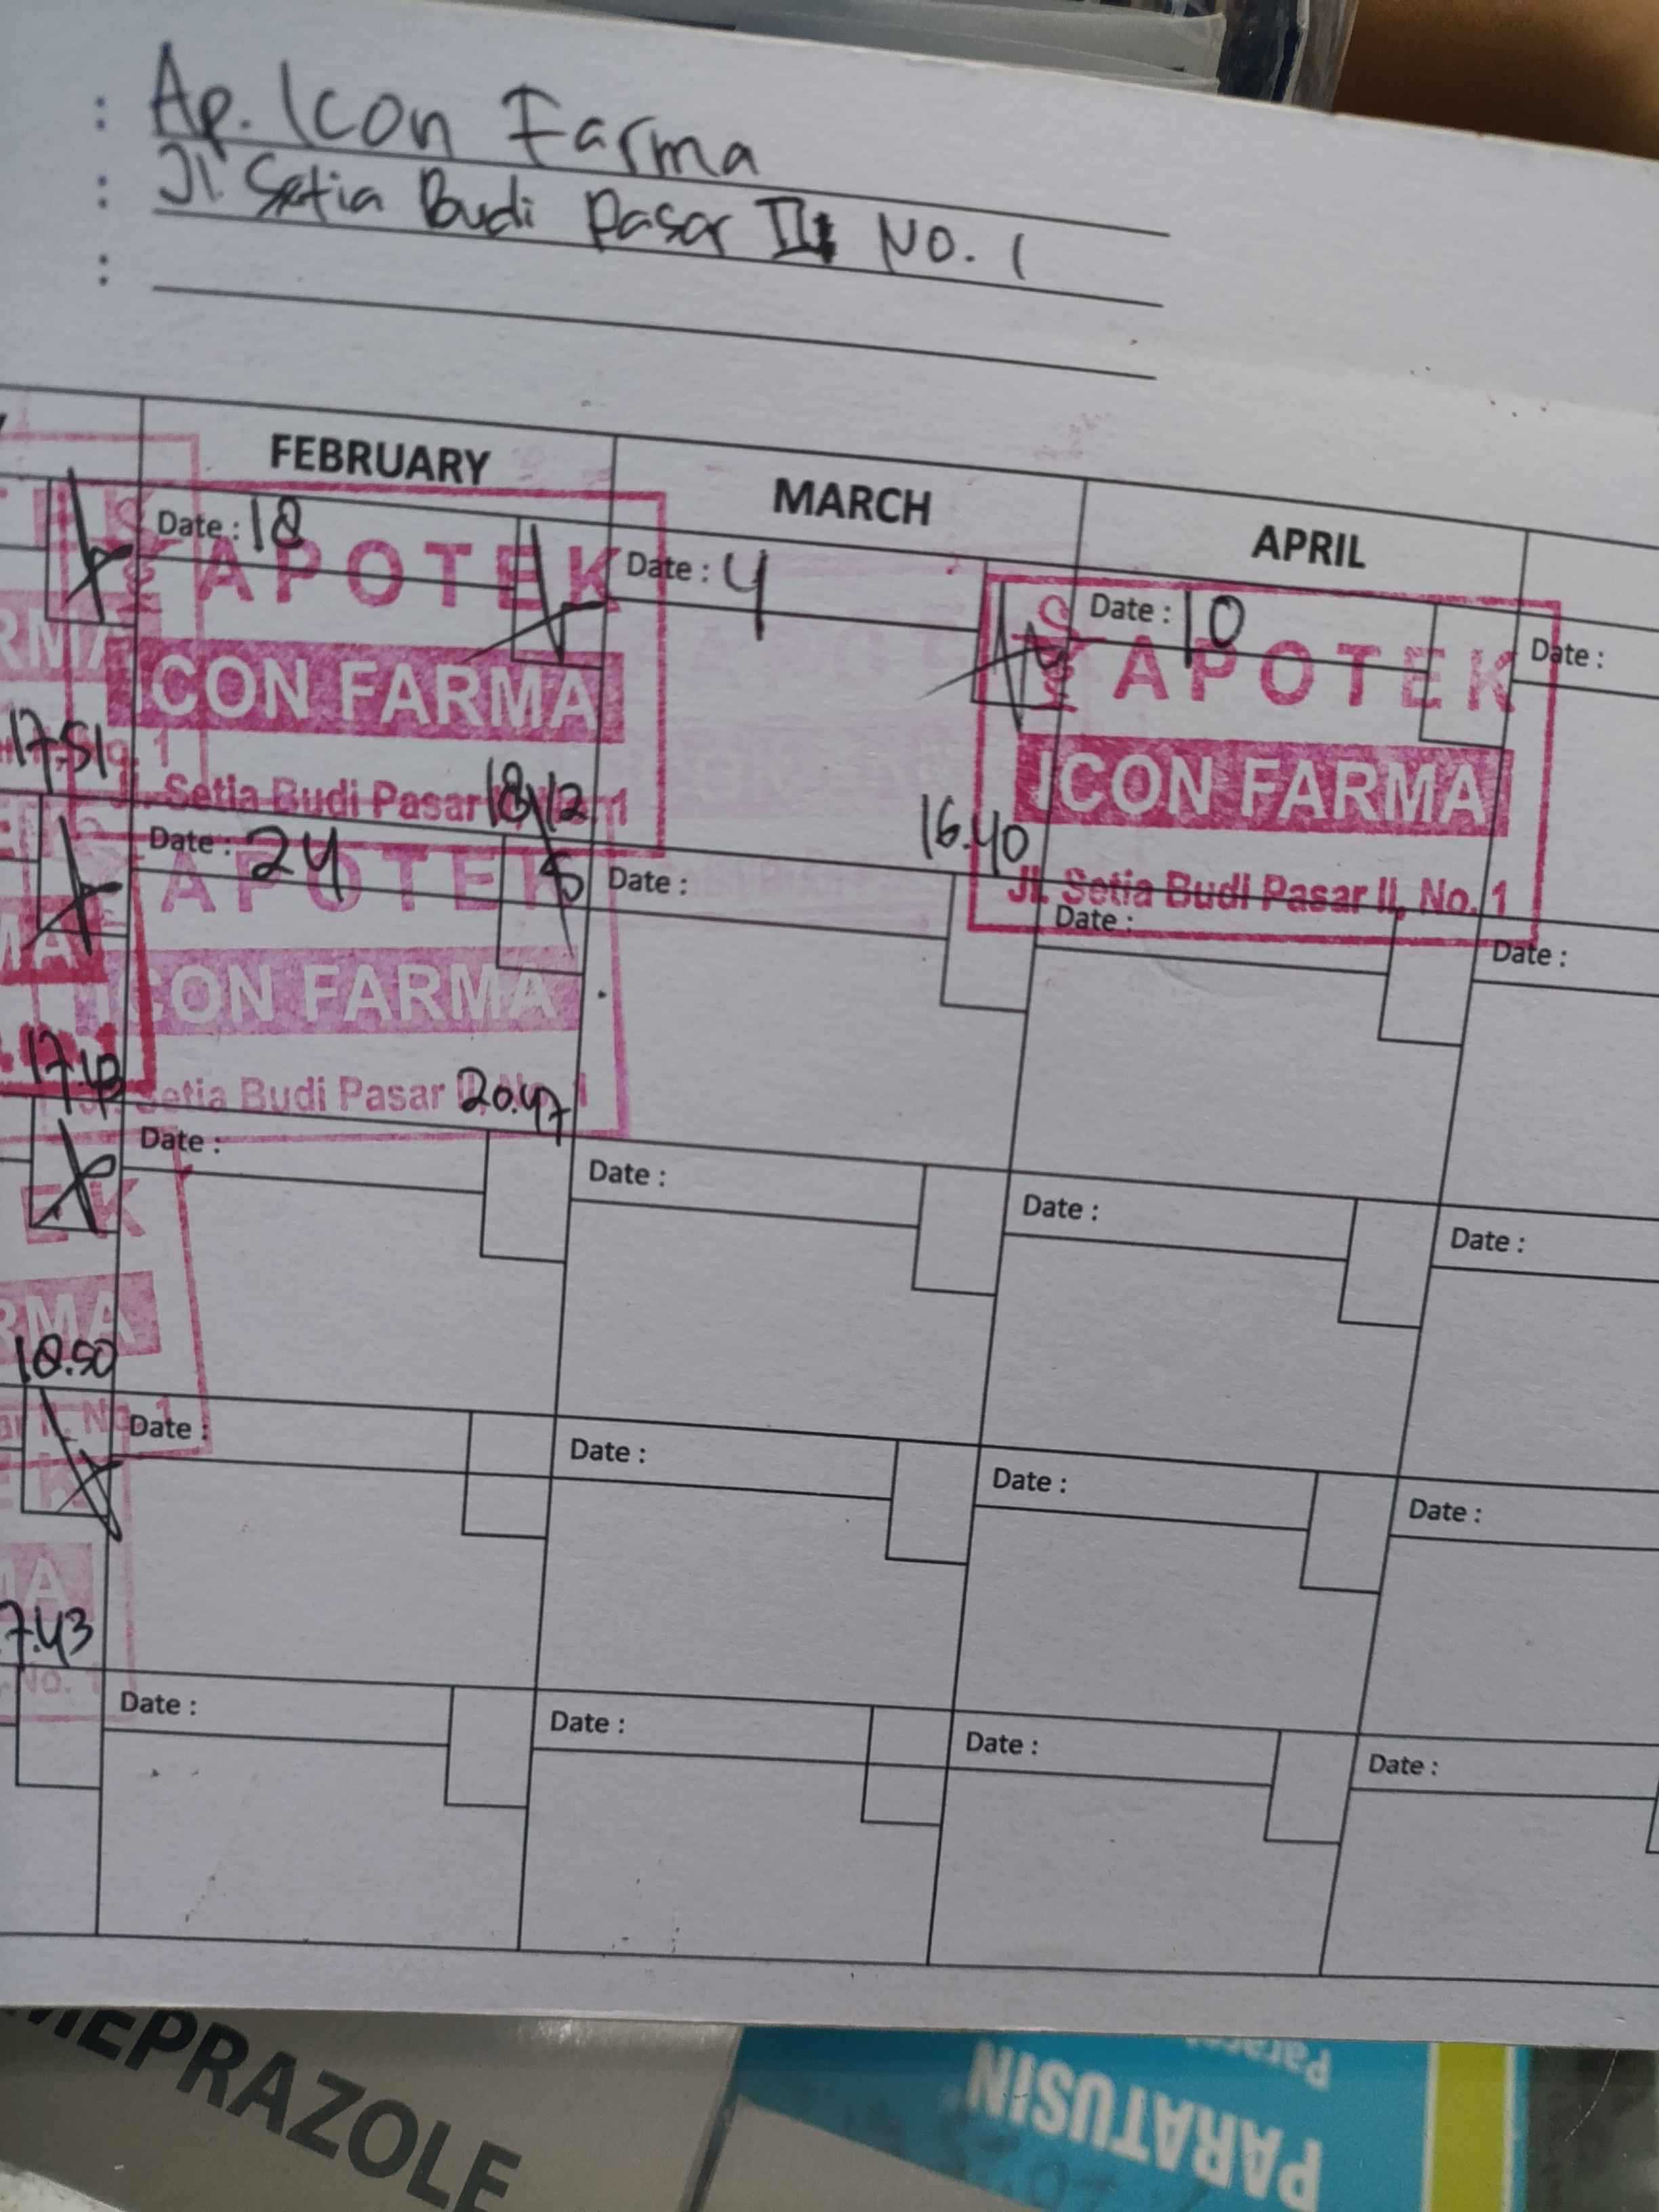 : Ap. Icon Farma
: Jl. Setia Budi Pasar II No. 1
:
FEBRUARY
MARCH
APRIL
Date : 18
Date : 4
Date : 10
Date :
APOTEK
ICON FARMA
Jl. Setia Budi Pasar II, No. 1
APOTEK
CON FARMA
Setia Budi Pasar
RMA
17.51
18.12
16.40
Date : 24
Date :
Date :
Date :
APOTEK
CON FARMA
Setia Budi Pasar
MA
20.47
Date :
Date :
Date :
Date :
EK
RMA
18.50
Date :
Date :
Date :
Date :
7.43
No. 1
Date :
Date :
Date :
Date :
MEPRAZOLE
PARATUSIN